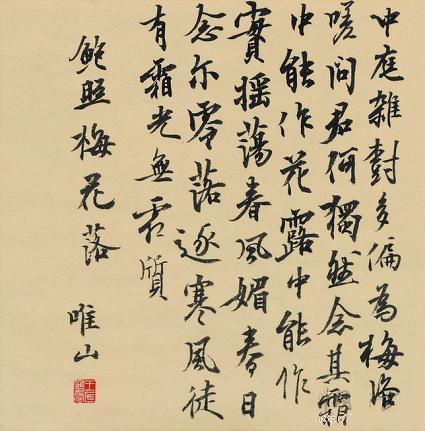 中庭雜樹多偏為梅咨
嗟問君何獨然念其霜
中能作花露中能作
實搖蕩春風媚春日
念尔零落逐寒風徒
有霜光無霜質
鮑照梅花落
唯山